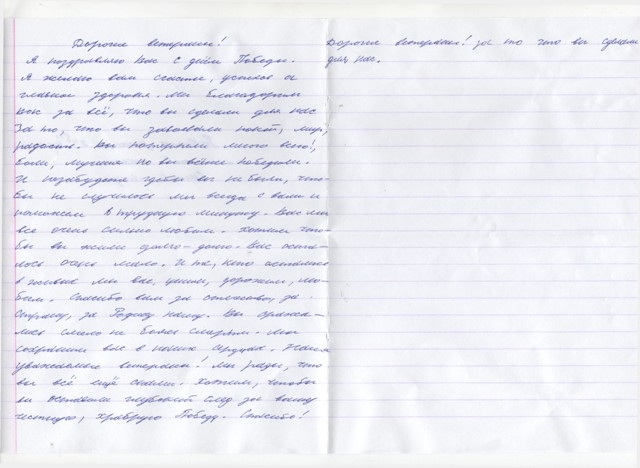 Дорогие ветераны!
Я поздравляю Вас с днём Победы.
Я желаю вам счастья, успехов и
главное здоровья. Мы благодарим
вас за всё, что вы сделали для нас
За то, что вы завоевали покой, мир,
радость. Вы потерпели много всего!,
боли, мучения но вы всёже победили.
И незабудте где бы вы не были, что-
бы не случилось мы всегда с вами и
поможем в трудную минуту. Вас мы
все очень сильно любим. Хотим что-
бы вы жили долго-долго. Вас оста-
лось очень мало. И те, кто остались
в живых мы вас, ценим, дорожим, лю-
бим. Спасибо вам за за
страну, за Родину нашу. Вы сража-
лись смело не боясь смерти. Мы
сохраним вас в наших сердцах. Наши
уважаемые ветераны! Мы рады, что
вы всё ещё с нами. Хотим, чтобы
вы оставили глубокий след за вашу
честную, храбрую Победу. Спасибо!
Дорогие ветераны! за то что вы сделали
для нас.